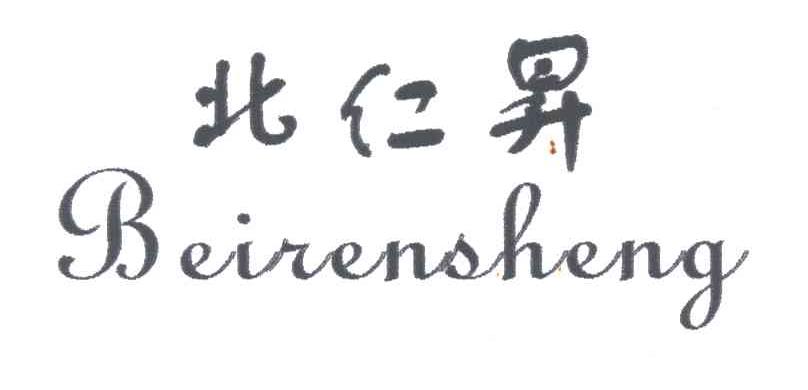 北仁昇
Beirensheng